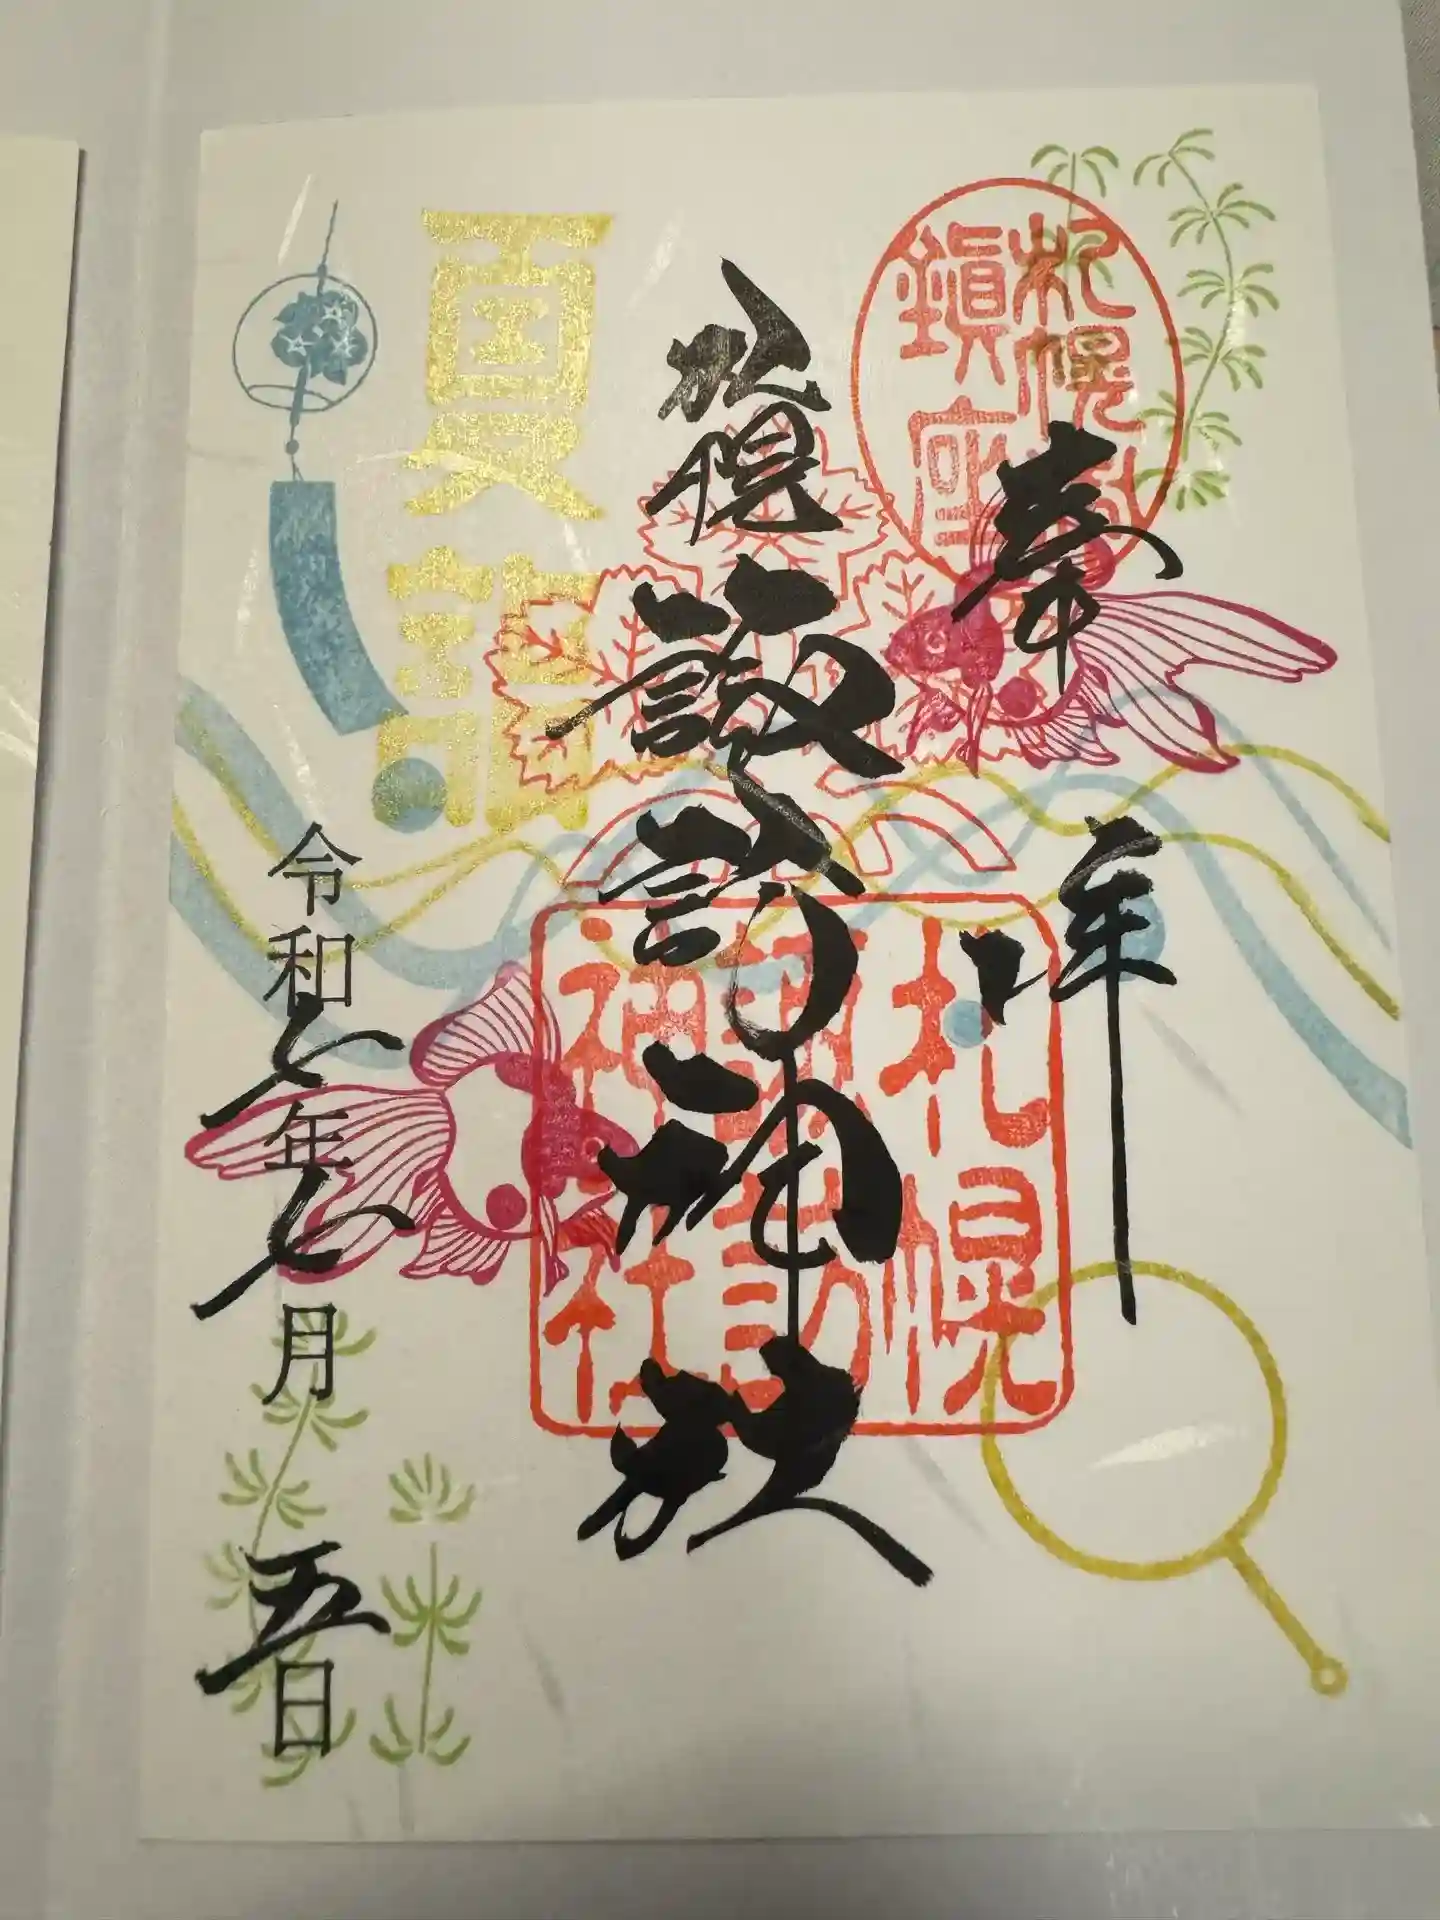 奉拝
札幌諏訪神社
夏詣
令和七年七月五日
札幌
鎮座
札幌
諏訪
神社